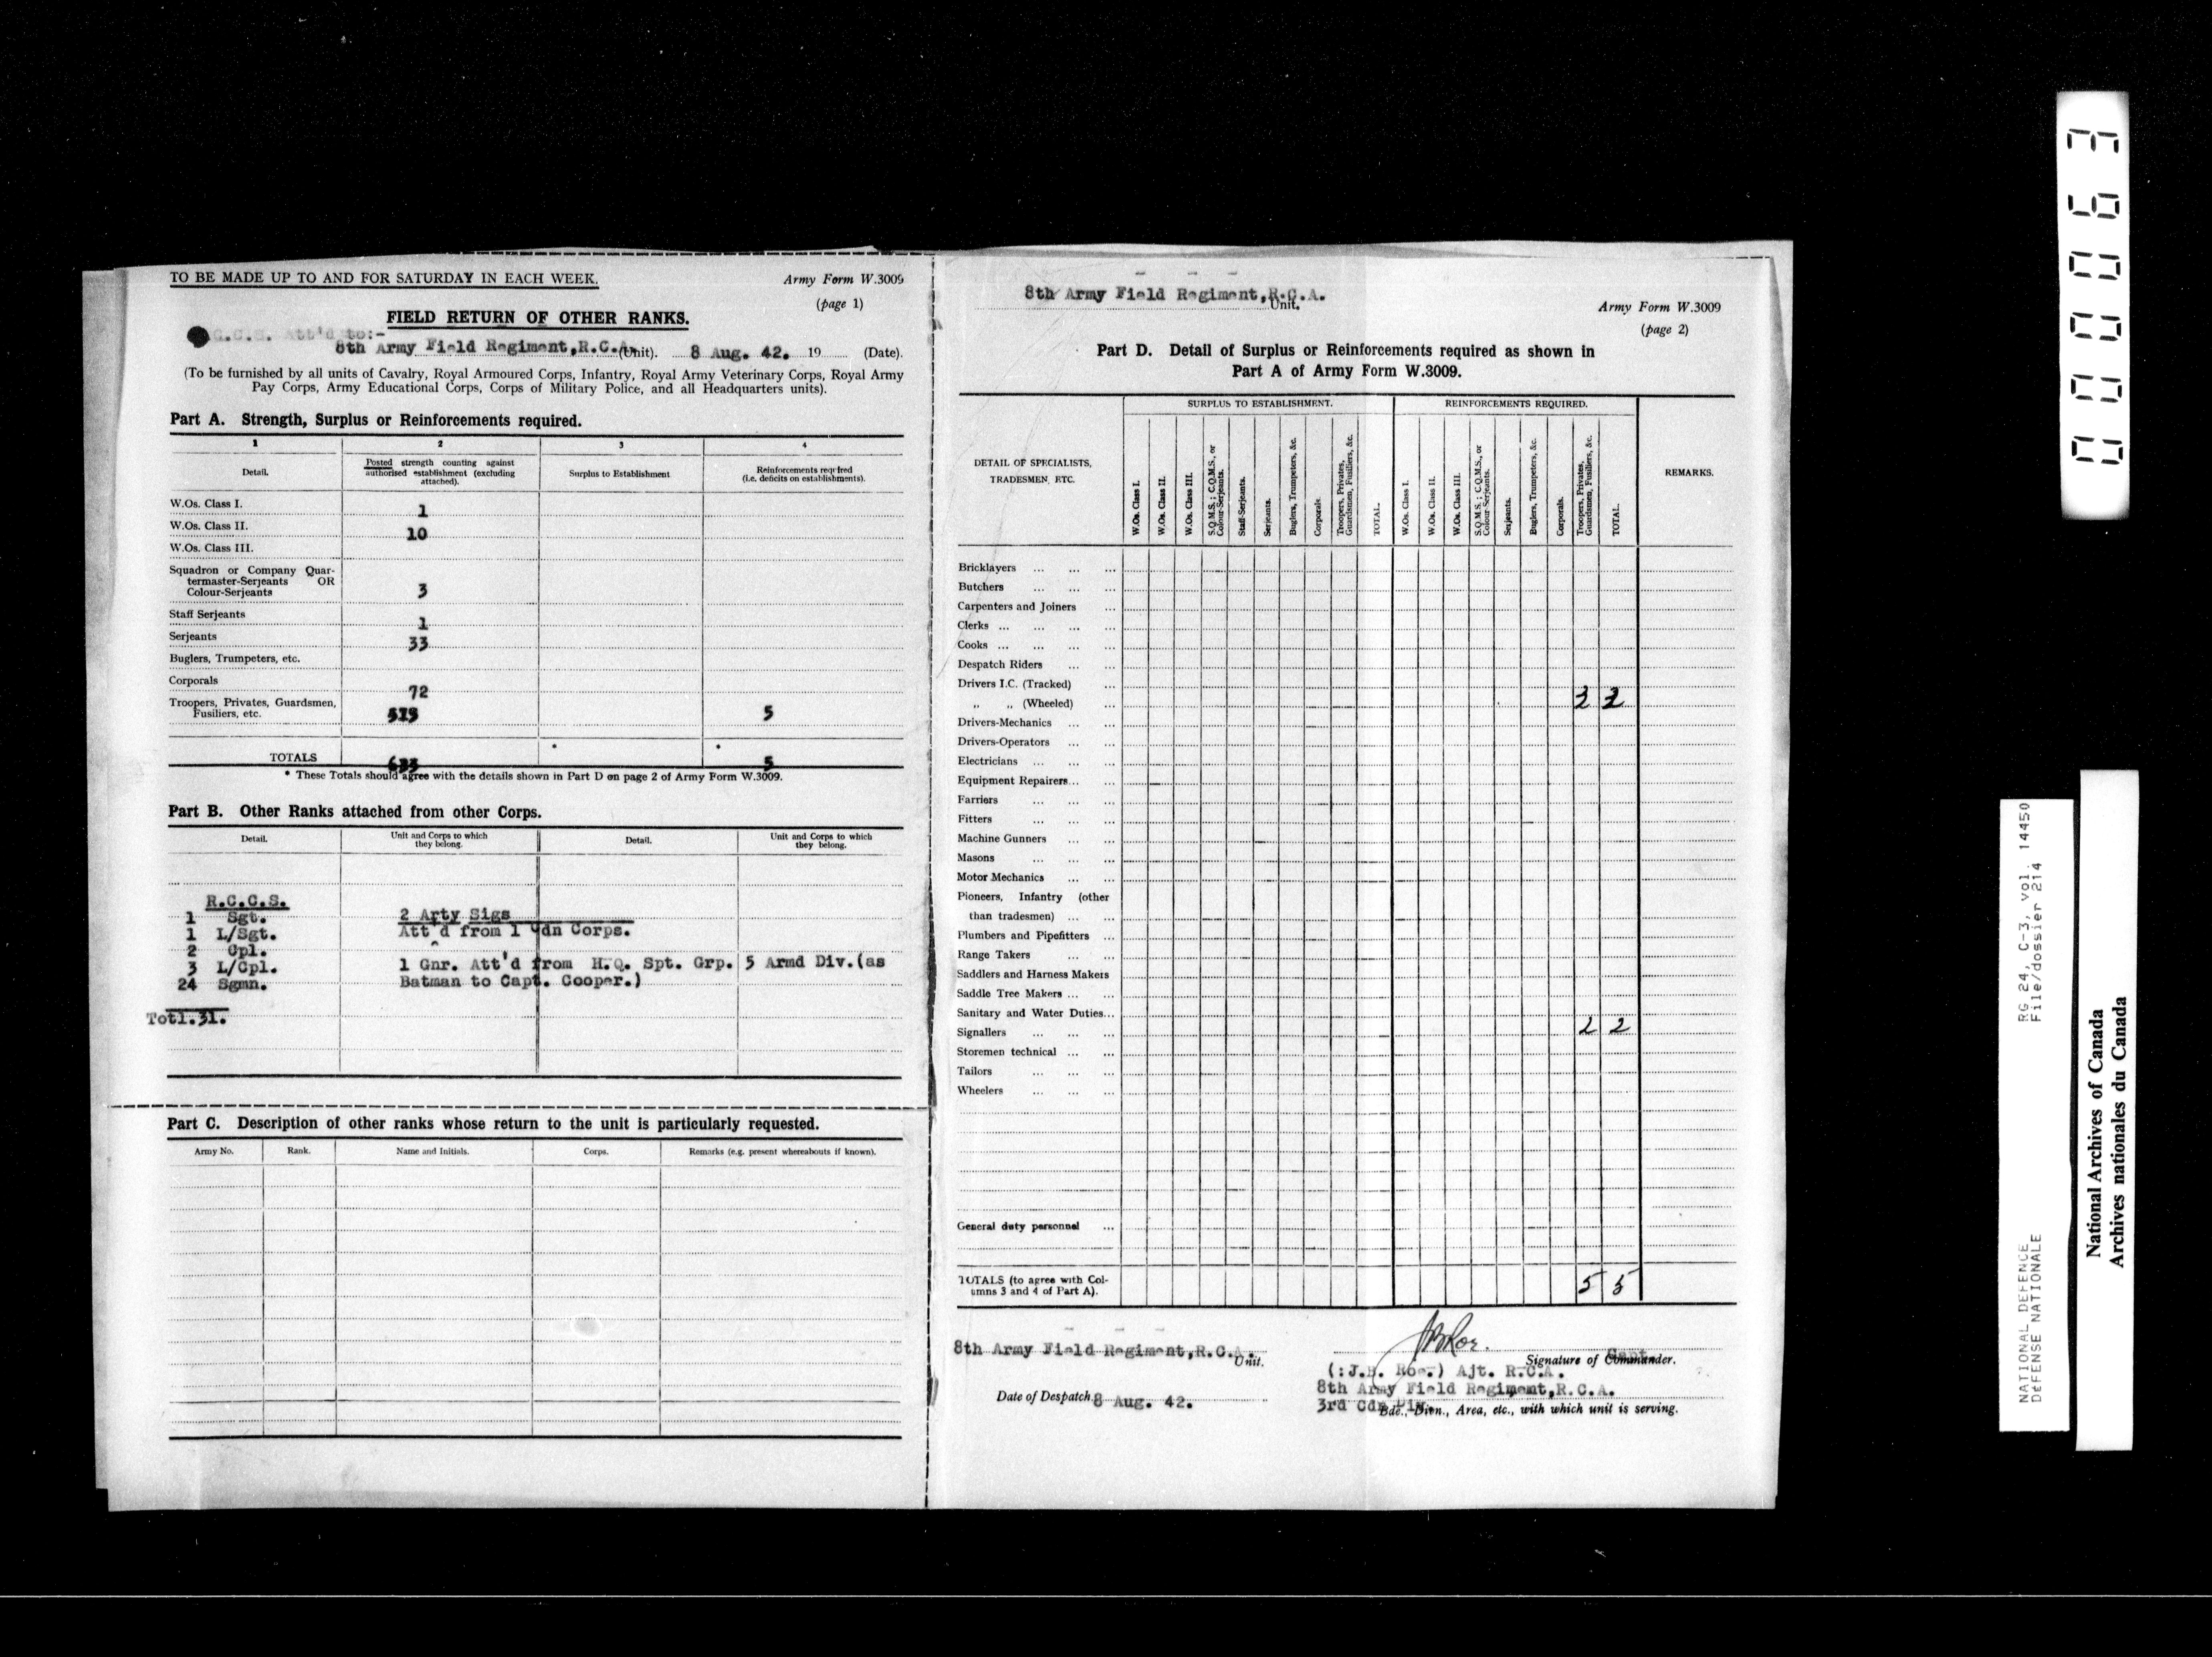 TO BE MADE UP TO AND FOR SATURDAY IN EACH WEEK.
Army Form W.3009
(page 1)
FIELD RETURN OF OTHER RANKS.
Att'd to:-
8th Army Field Regiment,R.C.A. (Unit). 8 Aug. 42. 19 (Date).
(To be furnished by all units of Cavalry, Royal Armoured Corps, Infantry, Royal Army Veterinary Corps, Royal Army
Pay Corps, Army Educational Corps, Corps of Military Police, and all Headquarters units).
Part A. Strength, Surplus or Reinforcements required.
1 2 3 4
Detail.
Posted strength counting against
authorised establishment (excluding
attached).
Surplus to Establishment
Reinforcements required
(i.e. deficits on establishments).
W.Os. Class I. 1
W.Os. Class II. 10
W.Os. Class III.
Squadron or Company Quar-
termaster-Serjeants OR
Colour-Serjeants 3
Staff Serjeants 1
Serjeants 33
Buglers, Trumpeters, etc.
Corporals 72
Troopers, Privates, Guardsmen,
Fusiliers, etc. 5
TOTALS * * 5
* These Totals should agree with the details shown in Part D on page 2 of Army Form W.3009.
Part B. Other Ranks attached from other Corps.
Detail.
Unit and Corps to which
they belong.
Detail.
Unit and Corps to which
they belong.
R.C.C.S.
1 Sgt. 2 Arty Sigs
1 L/Sgt. Att'd from 1 Cdn Corps.
2 Cpl.
3 L/Cpl. 1 Gnr. Att'd from H.Q. Spt. Grp. 5 Armd Div.(as
24 Sgmn. Batman to Capt. Cooper.)
Totl.31.
Part C. Description of other ranks whose return to the unit is particularly requested.
Army No. Rank. Name and Initials. Corps. Remarks (e.g. present whereabouts if known).
8th Army Field Regiment,R.C.A.
Unit.
Army Form W.3009
(page 2)
Part D. Detail of Surplus or Reinforcements required as shown in
Part A of Army Form W.3009.
DETAIL OF SPECIALISTS,
TRADESMEN, ETC.
SURPLUS TO ESTABLISHMENT.
W.Os. Class I.
W.Os. Class II.
W.Os. Class III.
S.Q.M.S.; C.Q.M.S., or
Colour-Serjeants.
Staff-Serjeants.
Serjeants.
Buglers, Trumpeters, &c.
Corporals.
Troopers, Privates,
Guardsmen, Fusiliers, &c.
TOTAL.
REINFORCEMENTS REQUIRED.
W.Os. Class I.
W.Os. Class II.
W.Os. Class III.
S.Q.M.S.; C.Q.M.S., or
Colour-Serjeants.
Serjeants.
Buglers, Trumpeters, &c.
Corporals.
Troopers, Privates,
Guardsmen, Fusiliers, &c.
TOTAL.
REMARKS.
Bricklayers ... ... ...
Butchers ... ... ...
Carpenters and Joiners ...
Clerks ... ... ... ...
Cooks ... ... ... ...
Despatch Riders ... ...
Drivers I.C. (Tracked) ...
„ „ (Wheeled) ... 3 3
Drivers-Mechanics ... ...
Drivers-Operators ... ...
Electricians ... ... ...
Equipment Repairers... ...
Farriers ... ... ...
Fitters ... ... ...
Machine Gunners ... ...
Masons ... ... ...
Motor Mechanics ... ...
Pioneers, Infantry (other
than tradesmen) ... ...
Plumbers and Pipefitters ...
Range Takers ... ...
Saddlers and Harness Makers
Saddle Tree Makers ... ...
Sanitary and Water Duties...
Signallers ... ... ... 2 2
Storemen technical ... ...
Tailors ... ... ...
Wheelers ... ... ...
General duty personnel ...
TOTALS (to agree with Col-
umns 3 and 4 of Part A). 5 5
8th Army Field Regiment,R.C.A.
Unit.
Date of Despatch 8 Aug. 42.
JBRoe.
Capt.
Signature of Commander.
(:J.B. Roe.) Ajt. R.C.A.
8th Army Field Regiment,R.C.A.
3rd Cdn Div.
Bde., Divn., Area, etc., with which unit is serving.
000063
NATIONAL DEFENCE RG 24, C-3, vol. 14450
DÉFENSE NATIONALE File/dossier 214
National Archives of Canada
Archives nationales du Canada